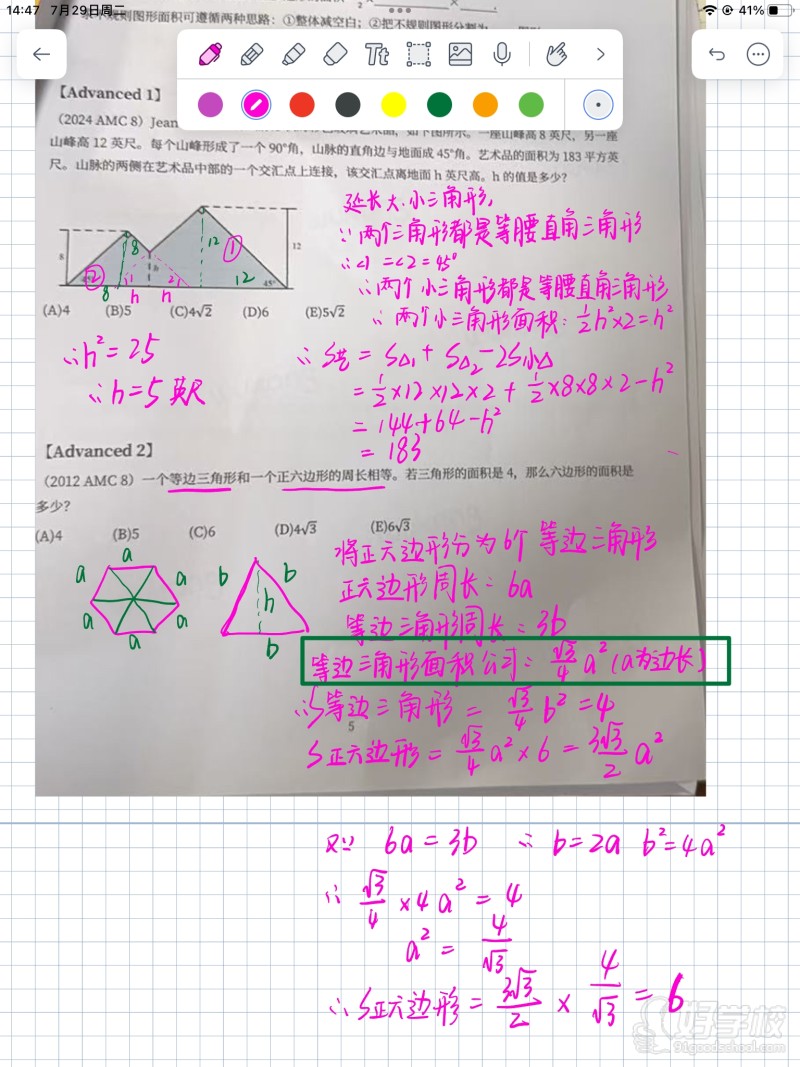 14:47 7月29日周二
41%
不规则图形面积可遵循两种思路：①整体减空白；②把不规则图形分割为
Tt
【Advanced 1】
（2024 AMC 8）Jean
如下图所示。一座山峰高 8 英尺，另一座
山峰高 12 英尺。每个山峰形成了一个 90°角，山脉的直角边与地面成 45°角。艺术品的面积为 183 平方英
尺。山脉的两侧在艺术品中部的一个交汇点上连接，该交汇点离地面 h 英尺高。h 的值是多少?
8
8
②
8
1
h
h
2
h
12
①
12
45°
12
(A)4 (B)5 (C)4√2 (D)6 (E)5√2
延长大.小三角形,
∵两个三角形都是等腰直角三角形
∴∠1=∠2=45°
∴两个小三角形都是等腰直角三角形
∴两个小三角形面积: ½h²×2=h²
∴S艺 = S△1 + S△2 - 2S小△
= ½×12×12×2 + ½×8×8×2 - h²
= 144+64-h²
= 183
∴h²=25
∴h=5英尺
【Advanced 2】
（2012 AMC 8）一个等边三角形和一个正六边形的周长相等。若三角形的面积是 4，那么六边形的面积是
多少?
(A)4 (B)5 (C)6 (D)4√3 (E)6√3
a
a
a
a
a
a
b
b
h
b
将正六边形分为6个等边三角形
正六边形周长=6a
等边三角形周长=3b
等边三角形面积公式= √3/4 a² (a为边长)
∴S等边三角形= √3/4 b²=4
5
S正六边形= √3/4 a²×6 = 3√3/2 a²
又∵ 6a=3b ∴b=2a b²=4a²
∴ √3/4 ×4a²=4
a²= 4/√3
∴S正六边形= 3√3/2 × 4/√3 = 6
好学校
91goodschool.com